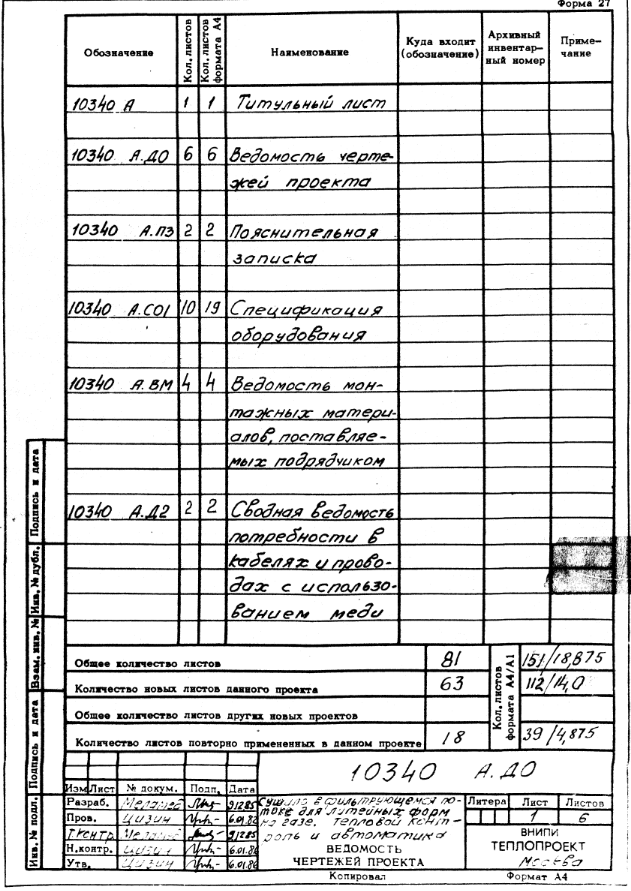 Форма 27
Обозначение
Кол. листов
Кол. листов формата А4
Наименование
Куда входит (обозначение)
Архивный инвентарный номер
Приме-
чание
10340 А 1 1 Титульный лист
10340 А.ДО 6 6 Ведомость черте-
жей проекта
10340 А.ПЗ 2 2 Пояснительная
записка
10340 А.СО1 10 19 Спецификация
оборудования
10340 А.ВМ 4 4 Ведомость мон-
тажных матери-
алов, поставляе-
мых подрядчиком
10340 А.Д2 2 2 Сводная ведомость
потребности в
кабелях и прово-
дах с использо-
ванием меди
Общее количество листов 81
Количество новых листов данного проекта 63
Общее количество листов других новых проектов
Количество листов повторно примененных в данном проекте 18
Кол. листов
формата А4/А1
151/18,875
112/14,0
39/4,875
10340 А.ДО
Изм Лист № докум. Подп. Дата
Разраб. 9.12.85
Пров. Цизин 6.01.86
Т.контр. 9.12.85
Н.контр. Цизин 6.01.86
Утв. Цизин 6.01.86
Сушило в фильтрующемся по-
токе для литейных форм
на газе. Тепловой конт-
роль и автоматика
ВЕДОМОСТЬ
ЧЕРТЕЖЕЙ ПРОЕКТА
Литера Лист Листов
1 6
ВНИПИ
ТЕПЛОПРОЕКТ
Москва
Копировал Формат А4
Инв. № подл. Подпись и дата Взам. инв. № Инв. № дубл. Подпись и дата